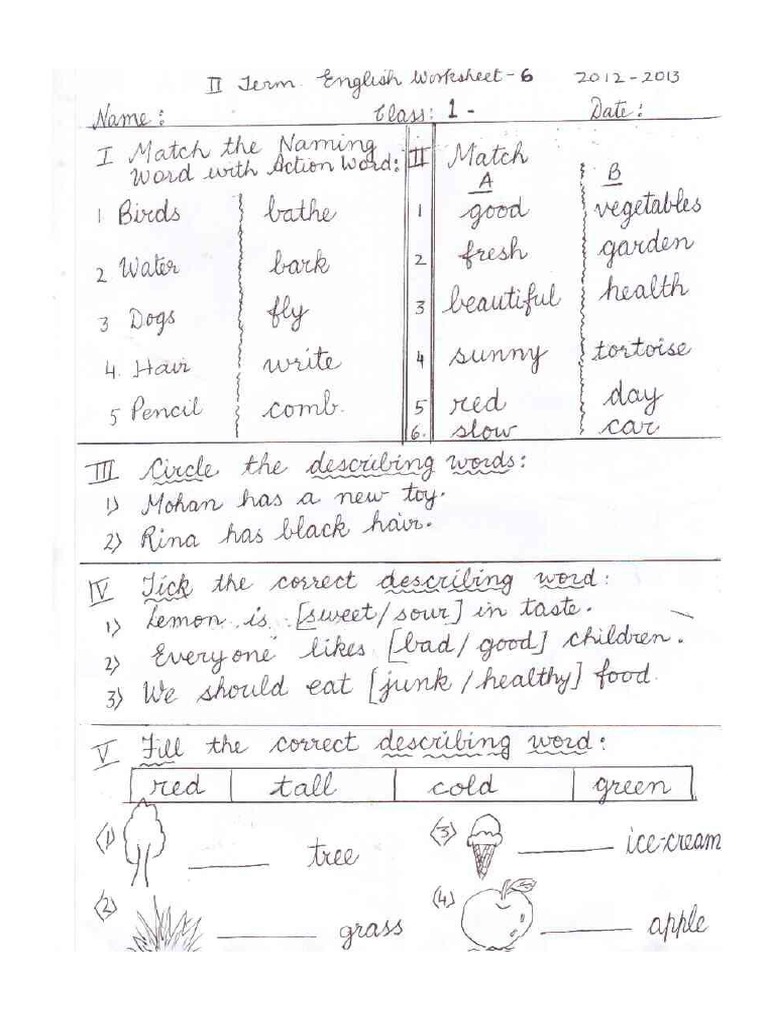 II Term English Worksheet-6 2012-2013
Name: Class: 1- Date:
I Match the Naming
Word with Action Word:
1 Birds bathe
2 Water bark
3 Dogs fly
4. Hair write
5 Pencil comb.
II Match
A B
1 good vegetables
2 fresh garden
3 beautiful health
4 sunny tortoise
5 red day
6. slow car
III Circle the describing words:
1) Mohan has a new toy.
2) Rina has black hair.
IV Tick the correct describing word:
1) Lemon is [sweet/sour] in taste.
2) Everyone likes [bad/good] children.
3) We should eat [junk/healthy] food.
V Fill the correct describing word:
red tall cold green
(1) ______ tree (3) ______ ice-cream
(2) ______ grass (4) ______ apple